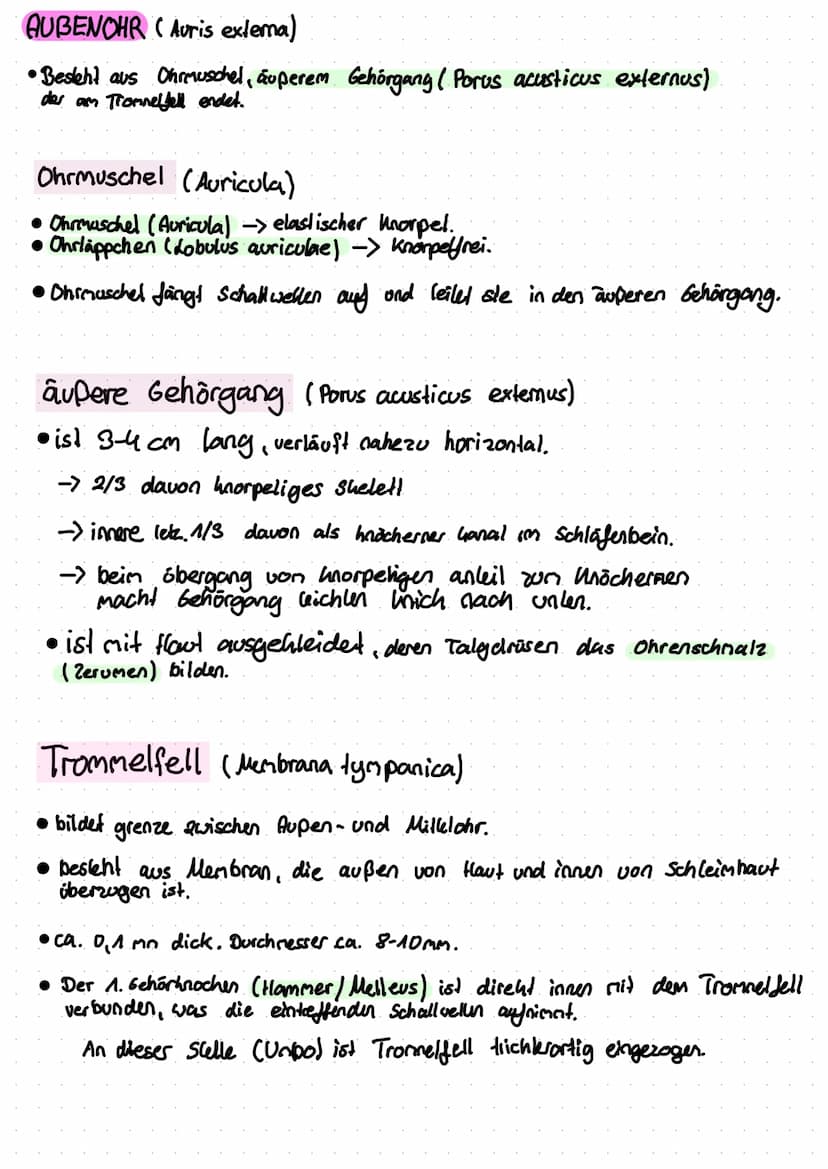 AUßENOHR (Auris externa)
• Besteht aus Ohrmuschel, äußerem Gehörgang (Porus acusticus externus)
der am Trommelfell endet.
Ohrmuschel (Auricula)
• Ohrmuschel (Auricula) -> elastischer Knorpel.
• Ohrläppchen (Lobulus auriculae) -> Knorpelfrei.
• Ohrmuschel fängt Schallwellen auf und leitet sie in den äußeren Gehörgang.
äußere Gehörgang (Porus acusticus externus)
• ist 3-4 cm lang, verläuft nahezu horizontal.
-> 2/3 davon knorpeliges Skelett
-> innere letz. 1/3 davon als knöcherner Kanal im Schläfenbein.
-> beim übergang von knorpeligen anteil zum Knöchernen
macht Gehörgang leichten knich nach unten.
• ist mit Haut ausgekleidet, deren Talgdrüsen das Ohrenschmalz
(Zerumen) bilden.
Trommelfell (Membrana tympanica)
• bildet grenze zwischen Außen- und Mittelohr.
• besteht aus Membran, die außen von Haut und innen von Schleimhaut
überzogen ist.
• ca. 0,1 mm dick. Durchmesser ca. 8-10mm.
• Der 1. Gehörknochen (Hammer/Melleus) ist direkt innen mit dem Trommelfell
verbunden, was die eintreffenden Schallwellen aufnimmt.
An dieser Stelle (Umbo) ist Trommelfell trichterartig eingezogen.